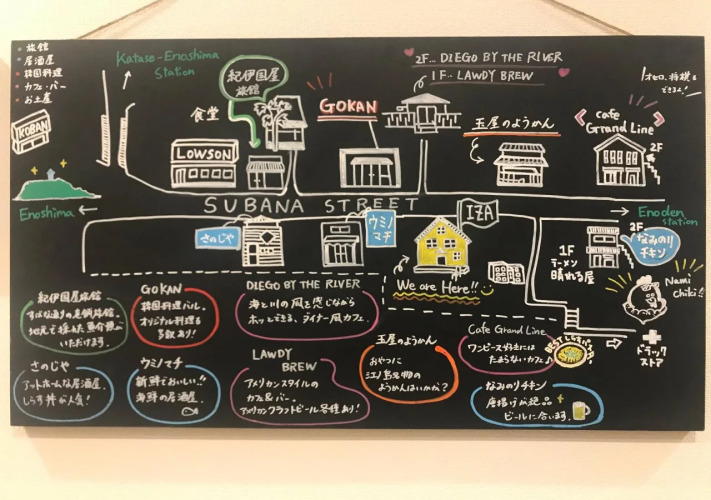 ・旅館
・居酒屋
・韓国料理
・カフェ・バー
・お土産
KOBAN
Katase-Enoshima
Station
紀伊国屋
旅館
食堂
LOWSON
GOKAN
2F... DIEGO BY THE RIVER
1F.. LAWDY BREW
玉屋のようかん
オセロ、将棋も
できるよ!
cafe
Grand Line
2F
Enoshima ←
SUBANA STREET
→ Enoden
station
さのじや
ウミノ
マチ
IZA
We are Here!!
2F
なみのり
チキン
1F
ラーメン
晴れる屋
Nami
Chiki!!
ドラック
ストア
紀伊国屋旅館
すばな通りの老舗旅館。
地元で採れた魚介類が
いただけます。
GOKAN
韓国料理バル。
オリジナル料理も
多数あり!
DIEGO BY THE RIVER
海と川の風を感じながら
ホッとできる、ダイナー風カフェ。
さのじや
アットホームな居酒屋。
しらす丼が人気!
ウミノマチ
新鮮でおいしい!!
海鮮の居酒屋。
LAWDY
BREW
アメリカンスタイルの
カフェ&バー。
アメリカンクラフトビール各種あり!
玉屋のようかん
おやつに
江ノ島名物の
ようかんはいかが?
Cafe Grand Line
ワンピース好きには
たまらないカフェ♪
なみのりチキン
唐揚げが絶品
ビールに合います。